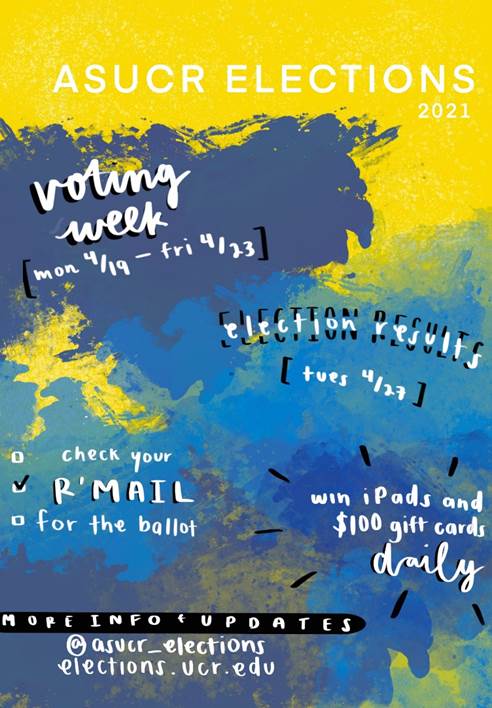 ASUCR ELECTIONS
2021
voting
week
[mon 4/19 - fri 4/23]
ELECTION RESULTS
election results
[tues 4/27]
check your
R'MAIL
for the ballot
win iPads and
$100 gift cards
daily
MORE INFO & UPDATES
@asucr_elections
elections.ucr.edu